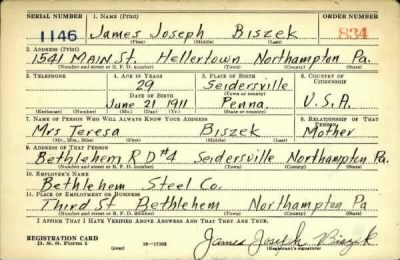 SERIAL NUMBER 1. NAME (Print) ORDER NUMBER
1146 James Joseph Biszek 834
(First) (Middle) (Last)
2. ADDRESS (Print)
1541 MAIN St. Hellertown Northampton Pa.
(Number and street or R. F. D. number) (Town) (County) (State)
3. TELEPHONE 4. AGE IN YEARS 5. PLACE OF BIRTH 6. COUNTRY OF CITIZENSHIP
29 Seidersville
DATE OF BIRTH (Town or county)
June 21 1911 Penna. U.S.A.
(Exchange) (Number) (Mo.) (Day) (Yr.) (State or country)
7. NAME OF PERSON WHO WILL ALWAYS KNOW YOUR ADDRESS 8. RELATIONSHIP OF THAT PERSON
Mrs Teresa Biszek Mother
(Mr., Mrs., Miss) (First) (Middle) (Last)
9. ADDRESS OF THAT PERSON
Bethlehem R D #4 Seidersville Northampton Pa.
(Number and street or R. F. D. number) (Town) (County) (State)
10. EMPLOYER'S NAME
Bethlehem Steel Co.
11. PLACE OF EMPLOYMENT OR BUSINESS
Third St Bethlehem Northampton Pa
(Number and street or R. F. D. number) (Town) (County) (State)
I AFFIRM THAT I HAVE VERIFIED ABOVE ANSWERS AND THAT THEY ARE TRUE.
REGISTRATION CARD
D. S. S. Form 1 (over) 16—17105 James Joseph Biszek
(Registrant's signature)